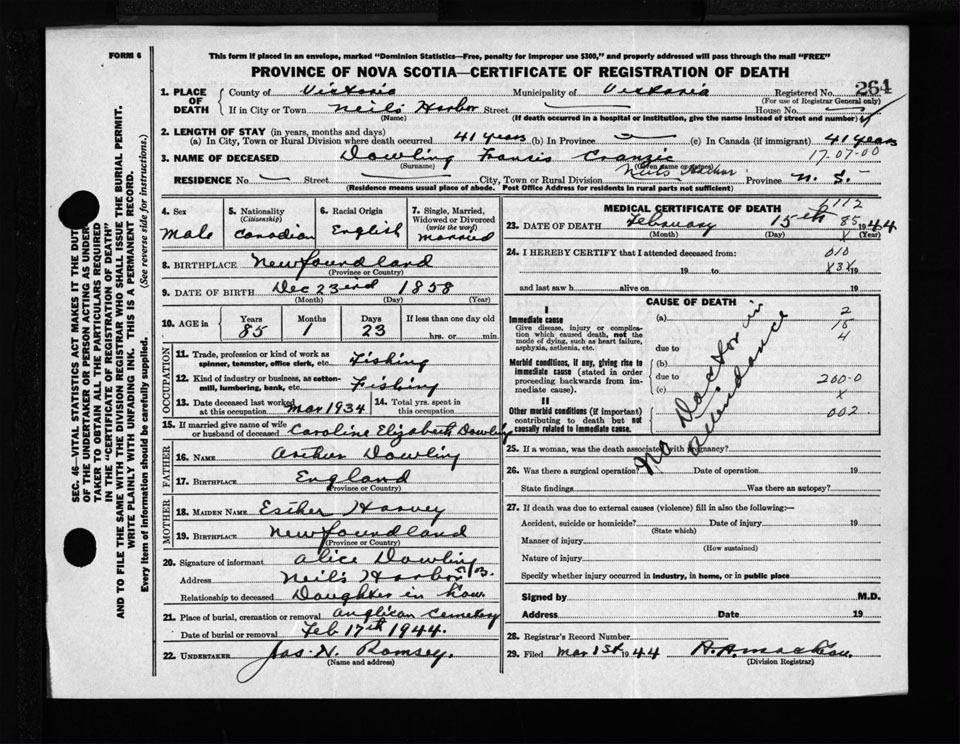 FORM 6
This form if placed in an envelope, marked "Dominion Statistics—Free, penalty for improper use $300," and properly addressed will pass through the mail "FREE"
PROVINCE OF NOVA SCOTIA—CERTIFICATE OF REGISTRATION OF DEATH
264
1. PLACE OF DEATH
County of Victoria Municipality of Victoria Registered No.
(For use of Registrar General only)
If in City or Town Neil's Harbor Street — House No. —
(Name) (If death occurred in a hospital or institution, give the name instead of street and number)
2. LENGTH OF STAY (in years, months and days)
(a) In City, Town or Rural Division where death occurred 41 years (b) In Province — (c) In Canada (if immigrant) 41 years
17-07-00
3. NAME OF DECEASED Dowling Francis
(Surname) (Given name or names)
RESIDENCE No. — Street City, Town or Rural Division Neils Harbor Province N. S.
(Residence means usual place of abode. Post Office Address for residents in rural parts not sufficient)
4. Sex Male
5. Nationality (Citizenship) Canadian
6. Racial Origin English
7. Single, Married, Widowed or Divorced (write the word) Married
8. BIRTHPLACE Newfoundland
(Province or Country)
9. DATE OF BIRTH Dec 23rd 1858
(Month) (Day) (Year)
10. AGE in Years 85 Months 1 Days 23 If less than one day old hrs. or min.
11. Trade, profession or kind of work as spinner, teamster, office clerk, etc. Fishing
12. Kind of industry or business, as cotton-mill, lumbering, bank, etc. Fishing
13. Date deceased last worked at this occupation Mar 1934
14. Total yrs. spent in this occupation
15. If married give name of wife or husband of deceased Caroline Elizabeth Dowling
FATHER
16. NAME Arthur Dowling
17. BIRTHPLACE England
(Province or Country)
MOTHER
18. MAIDEN NAME Esther Harvey
19. BIRTHPLACE Newfoundland
(Province or Country)
20. Signature of informant Alice Dowling
Address Neil's Harbor
Relationship to deceased Daughter in law
21. Place of burial, cremation or removal Anglican Cemetery
Date of burial or removal Feb 17th 1944.
22. UNDERTAKER Jas. N. Romsey.
(Name and address)
MEDICAL CERTIFICATE OF DEATH
23. DATE OF DEATH February 15th 1944
(Month) (Day) (Year)
85
X
24. I HEREBY CERTIFY that I attended deceased from: 010
19 to X3X 19
and last saw h alive on 19
CAUSE OF DEATH
I
Immediate cause
Give disease, injury or complication which caused death, not the mode of dying, such as heart failure, asphyxia, asthenia, etc.
(a)
due to
Morbid conditions, if any, giving rise to immediate cause (stated in order proceeding backwards from immediate cause).
(b)
due to
(c)
II
Other morbid conditions (if important) contributing to death but not causally related to immediate cause.
No Doctor in Attendance
2
4
200-0
X
002
25. If a woman, was the death associated with pregnancy?
26. Was there a surgical operation? Date of operation 19
State findings Was there an autopsy?
27. If death was due to external causes (violence) fill in also the following:—
Accident, suicide or homicide? Date of injury 19
(State which)
Manner of injury
(How sustained)
Nature of injury
Specify whether injury occurred in industry, in home, or in public place
Signed by M.D.
Address Date 19
28. Registrar's Record Number
29. Filed Mar 1st 1944
(Division Registrar)
SEC. 46—VITAL STATISTICS ACT MAKES IT THE DUTY
OF THE UNDERTAKER OR PERSON ACTING AS UNDERTAKER
TO OBTAIN ALL THE PARTICULARS REQUIRED
IN THE "CERTIFICATE OF REGISTRATION OF DEATH"
AND TO FILE THE SAME WITH THE DIVISION REGISTRAR WHO SHALL ISSUE THE BURIAL PERMIT.
WRITE PLAINLY WITH UNFADING INK. THIS IS A PERMANENT RECORD.
Every item of information should be carefully supplied. (See reverse side for instructions.)